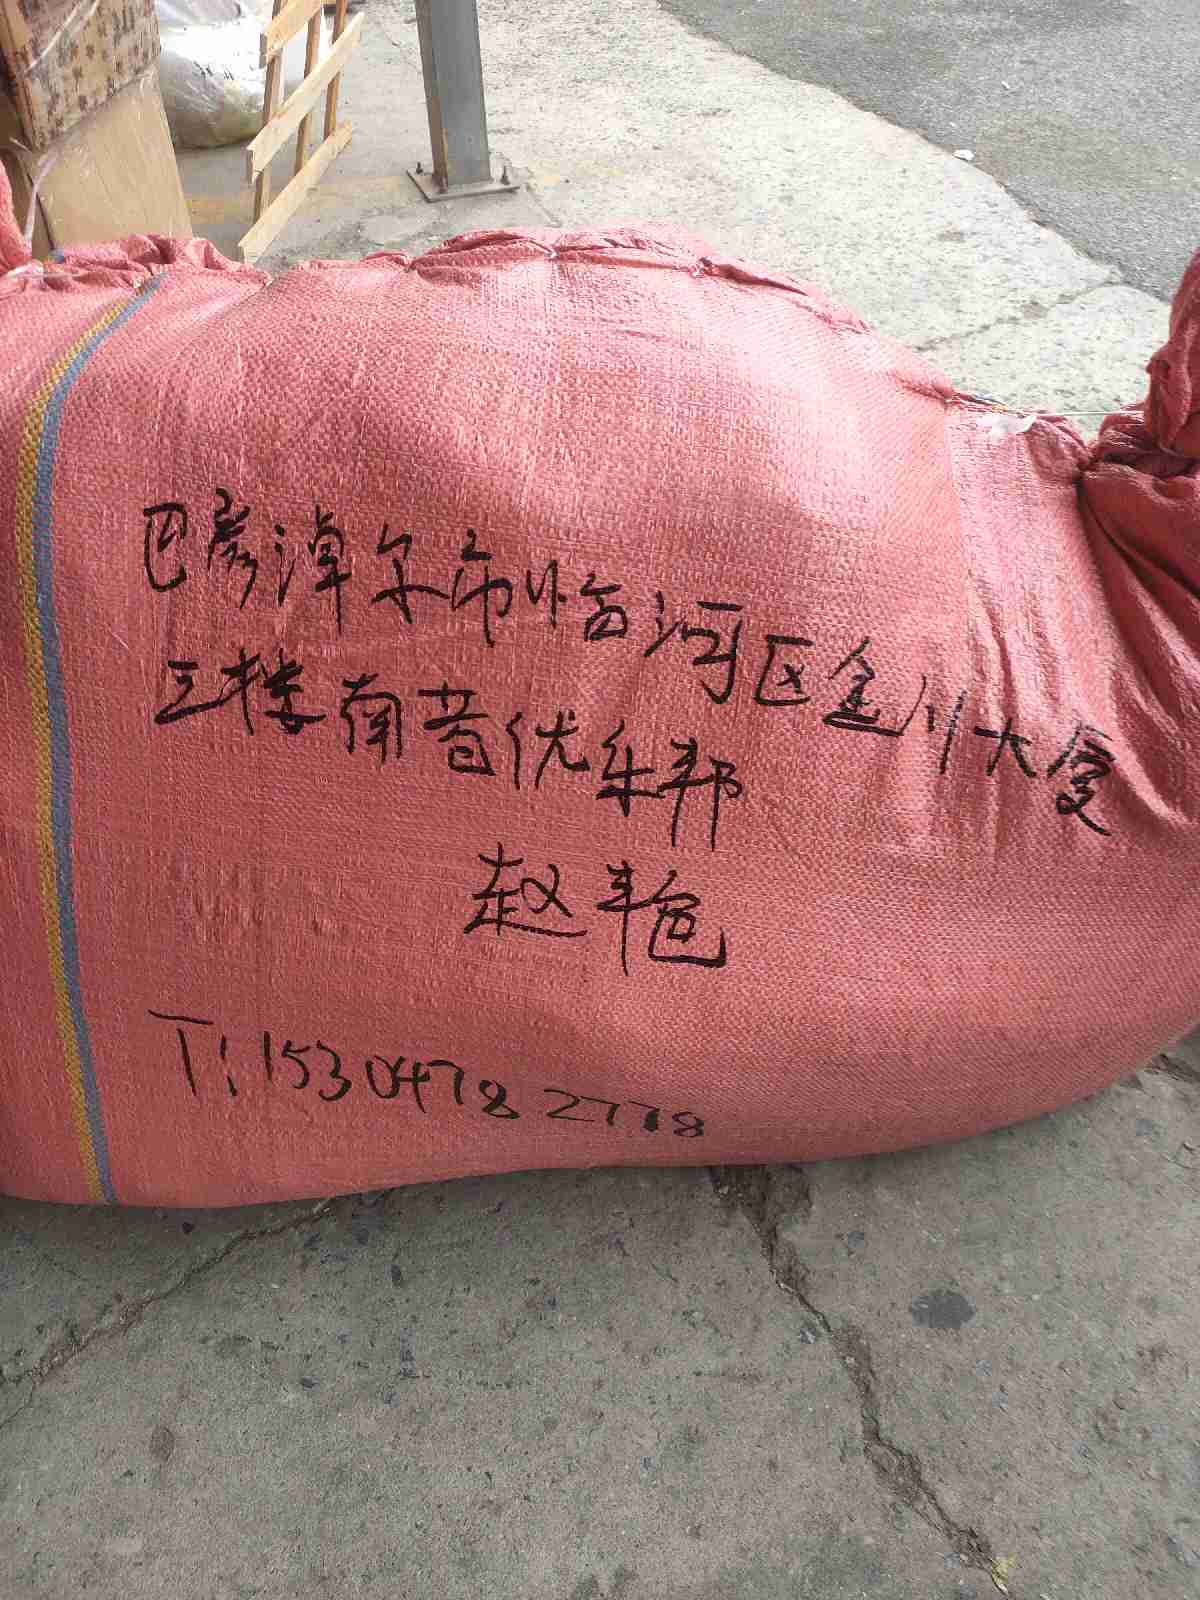 巴彦淖尔市临河区金川大厦
三楼南昔优乐邦
赵艳
T:15304782778